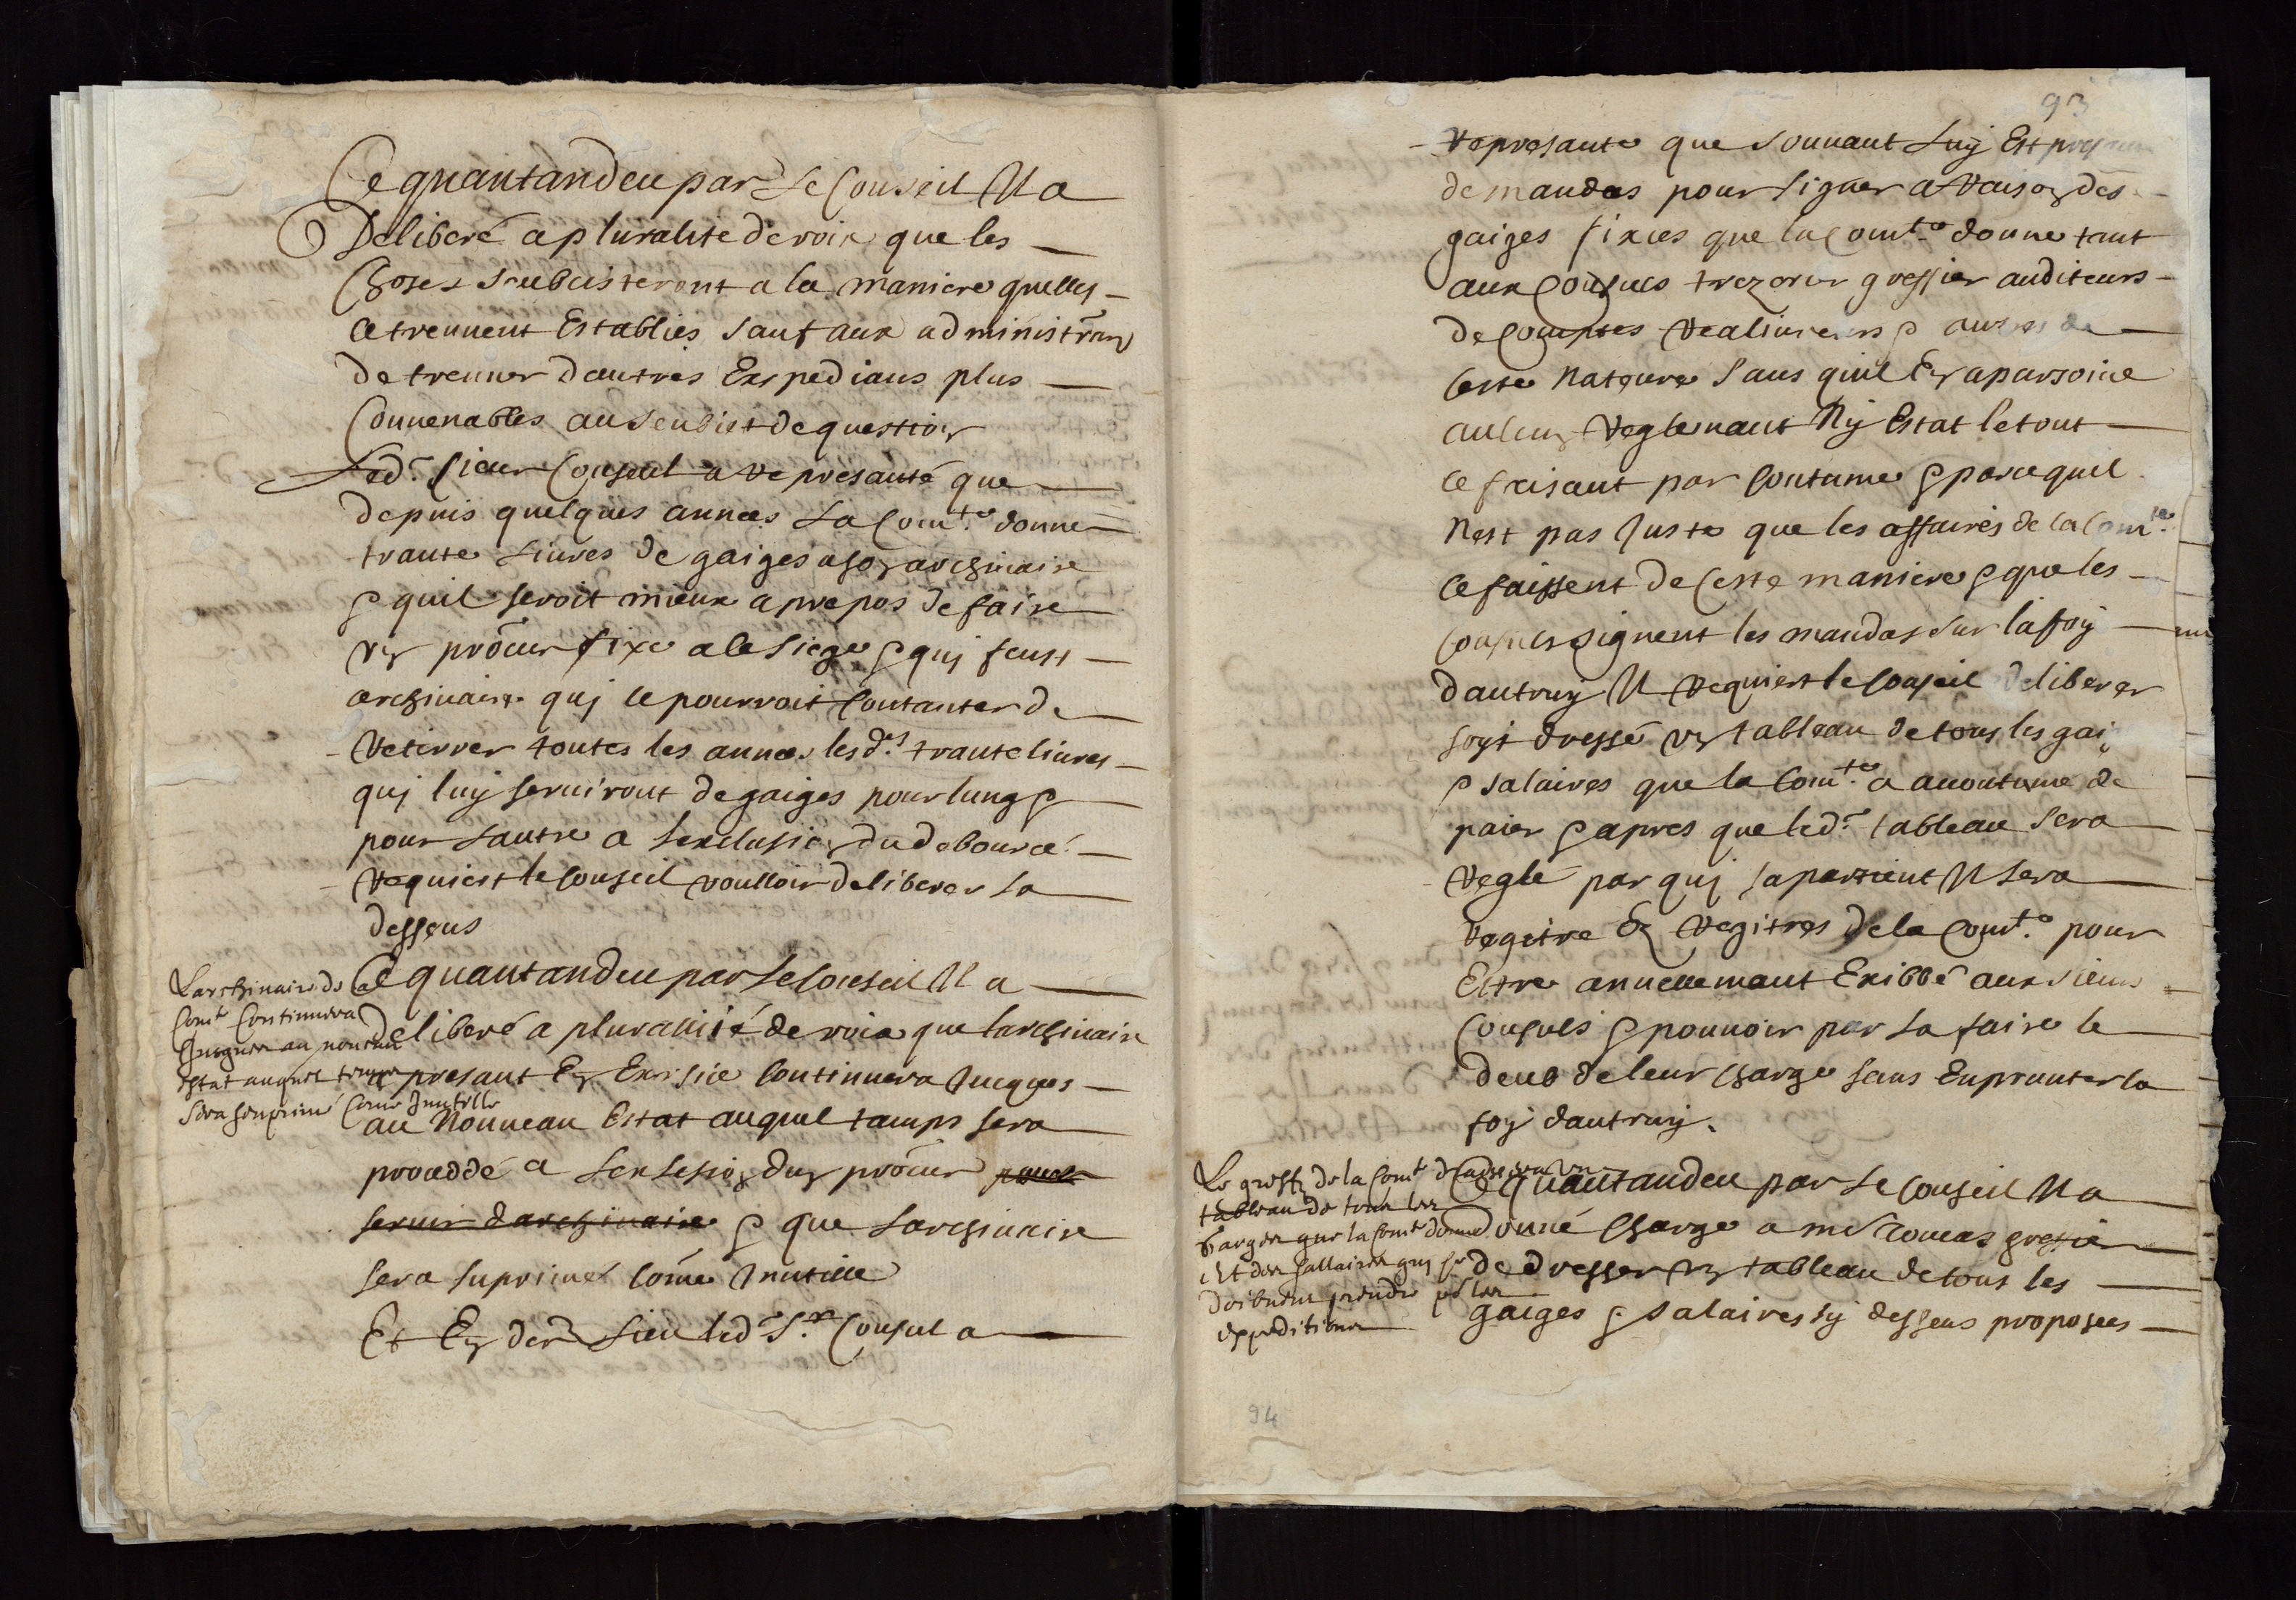 Ce quantandeu par Le Conseil Il a
Deliberé a pluralité de voix que les
Choses seubcisteront a la maniere quelles
ce treuuent Establies sauf aux administran
de treuuer dautres Exspedians plus
Conuenables au seubiet de question
Led.t sieur Consul a represanté que
depuis quelques annees La Com.te donne
trante Liures de gaiges a son archiuaire
& quil seroit mieux a prepos de faire
vn prõcur fixe a le siege & quj feust
archiuaire quj ce pourroit Contanter de
Retirrer toutes les annees lesd.es trante liures
quj luy seruiront de gaiges pour lung &
pour Lautre a Lexclusion du debource
Requiert le Conseil voulloir deliberer La
dessus
Larchiuaire de la
Com.te Continuera
Jusques au nouueau
estat auquel temps
sera souprimé Come Inutille
Ce quantandeu par Le Conseil Il a
deliberé a pluralité de voix que larchiuaire
a presant En Exersice Continuera Jucques
au Nouueau Estat auquel tamps sera
proueddé a Lenlesion dun prõcur pour
seruir darchiuaire & que Larchiuaire
sera suprimet Cõme Jnutille
Et En der Lieu led.t S.r Consul a
93
Represante que Souuant Luy Est presan
de mandas pour signer a Raison des
gaiges fixees que la Com.te donne tant
aux Consuls trezorier greffier auditeurs
de Comptes Realiureurs & autres de
Ceste Nateure Sans quil En aparsoiue
aulcun Reglemant Ny Estat le tout
ce faisant par Coutume & parce quil
Nest pas Juste que les affaires de la Com.te
ce faissent de Ceste maniere & que les
Consuls signent les mandas sur la foy
dautruy Il Requiert le Conseil deliberer
soyt dressé vn tableau de tous les gai
& salaires que la Com.te a acoutume de
paier & apres que led.t tableau sera
Reglé par quj sapartient Il sera
Regitre En Regitres de la Com.te pour
Estre annuellemant Exibbé aux sieurs
Consuls & pouuoir par La faire le
deub de leur Charge sans Enprunter la
foy dautruy.
Le greff.r de la Com.te dressera vn
tableau de tous les
gaiges que la Com.te donne
Et des sallaires quj se
doibuent prendre p.r les
expeditions
Ce quantandeu par Le Conseil Il a
Donné Charge a me Romas greffier
de dresser vn tableau de tous les
gaiges & salaires sy dessus proposees
94